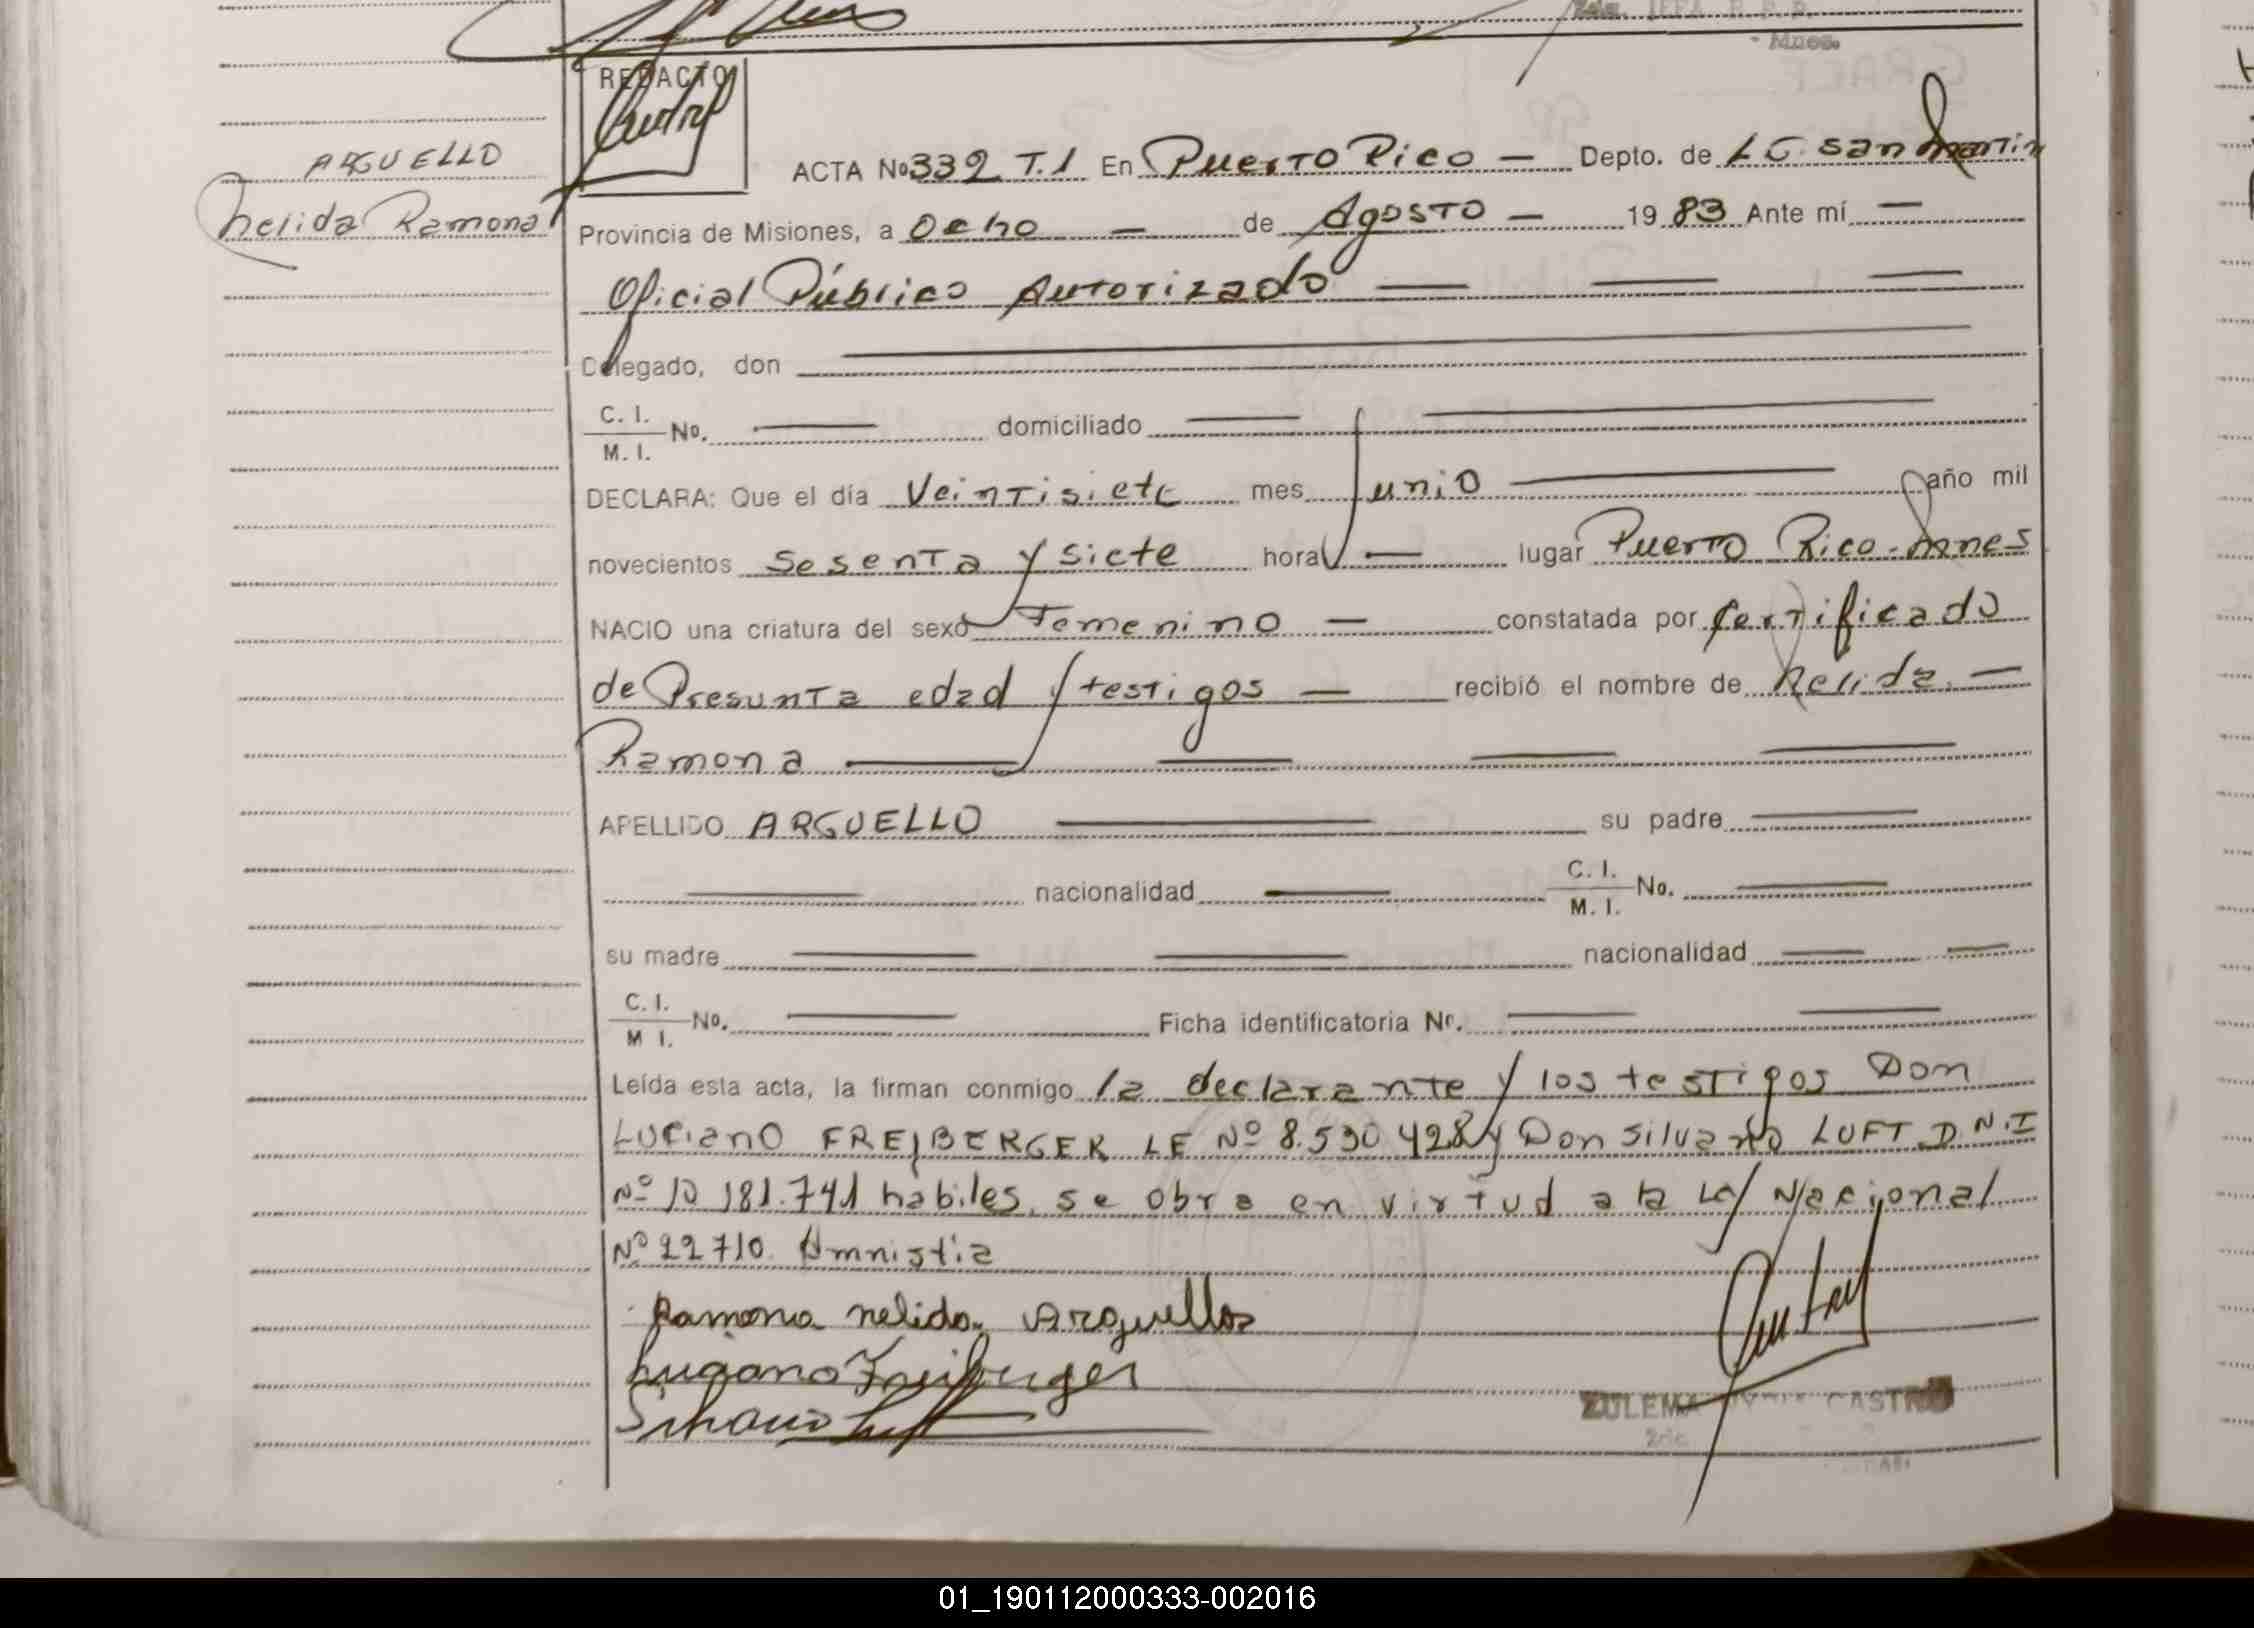 - Mnes.
REDACTO
ARGUELLO
Nelida Ramona
ACTA No 332 T.1 En Puerto Rico — Depto. de L G. San Martin
Provincia de Misiones, a Ocho — de Agosto — 19 83 Ante mí —
Oficial Público Autorizado — — —
Delegado, don —
C. I.
M. I. No. — domiciliado — —
DECLARA: Que el día Veintisiete mes Junio — año mil
novecientos Sesenta y siete hora — lugar Puerto Rico - Mnes
NACIO una criatura del sexo Femenino — constatada por Certificado
de Presunta edad y testigos — recibió el nombre de Nelida —
Ramona — — — —
APELLIDO ARGUELLO — su padre —
— nacionalidad — C. I.
M. I. No. —
su madre — — nacionalidad — —
C. I.
M I. No. — Ficha identificatoria Nº. — —
Leída esta acta, la firman conmigo la declarante y los testigos Don
Luciano FREIBERGER LE Nº 8.530 428 y Don Silvano LUFT D N.I
Nº 10 181.741 habiles, se obra en virtud a la Ley Nacional
Nº 22710. Amnistia
Ramona nelida Arguello
Lugano Freiberger
Silvano Luft
ZULEMA CASTRO
01_190112000333-002016